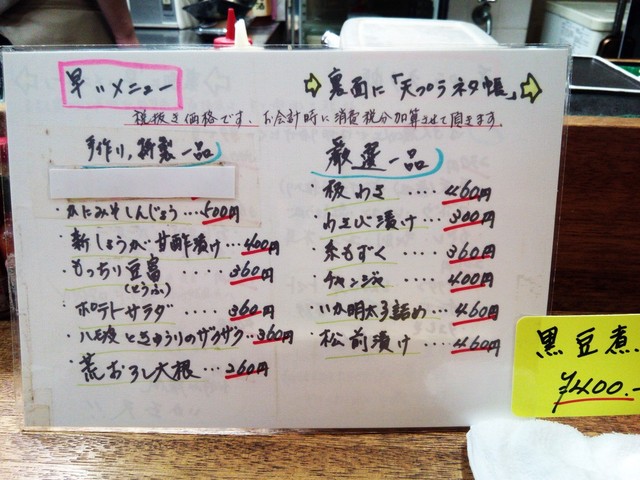 早いメニュー
裏面に「天ぷらネタ帳」
税抜き価格です、お会計時に消費税分加算させて頂きます
手作り,特製一品
・かにみそしんじょう…500円
・新しょうが甘酢漬け…400円
・もっちり豆富....360円
(とうふ)
・ポテトサラダ....360円
・八丁味噌ときゅうりのザクザク…360円
・荒おろし大根…260円
厳選一品
・板わさ....460円
・わさび漬け...300円
・糸もずく....360円
・チャンジャ....400円
・いか明太子詰め...460円
・松前漬け...460円
黒豆煮
¥400.-